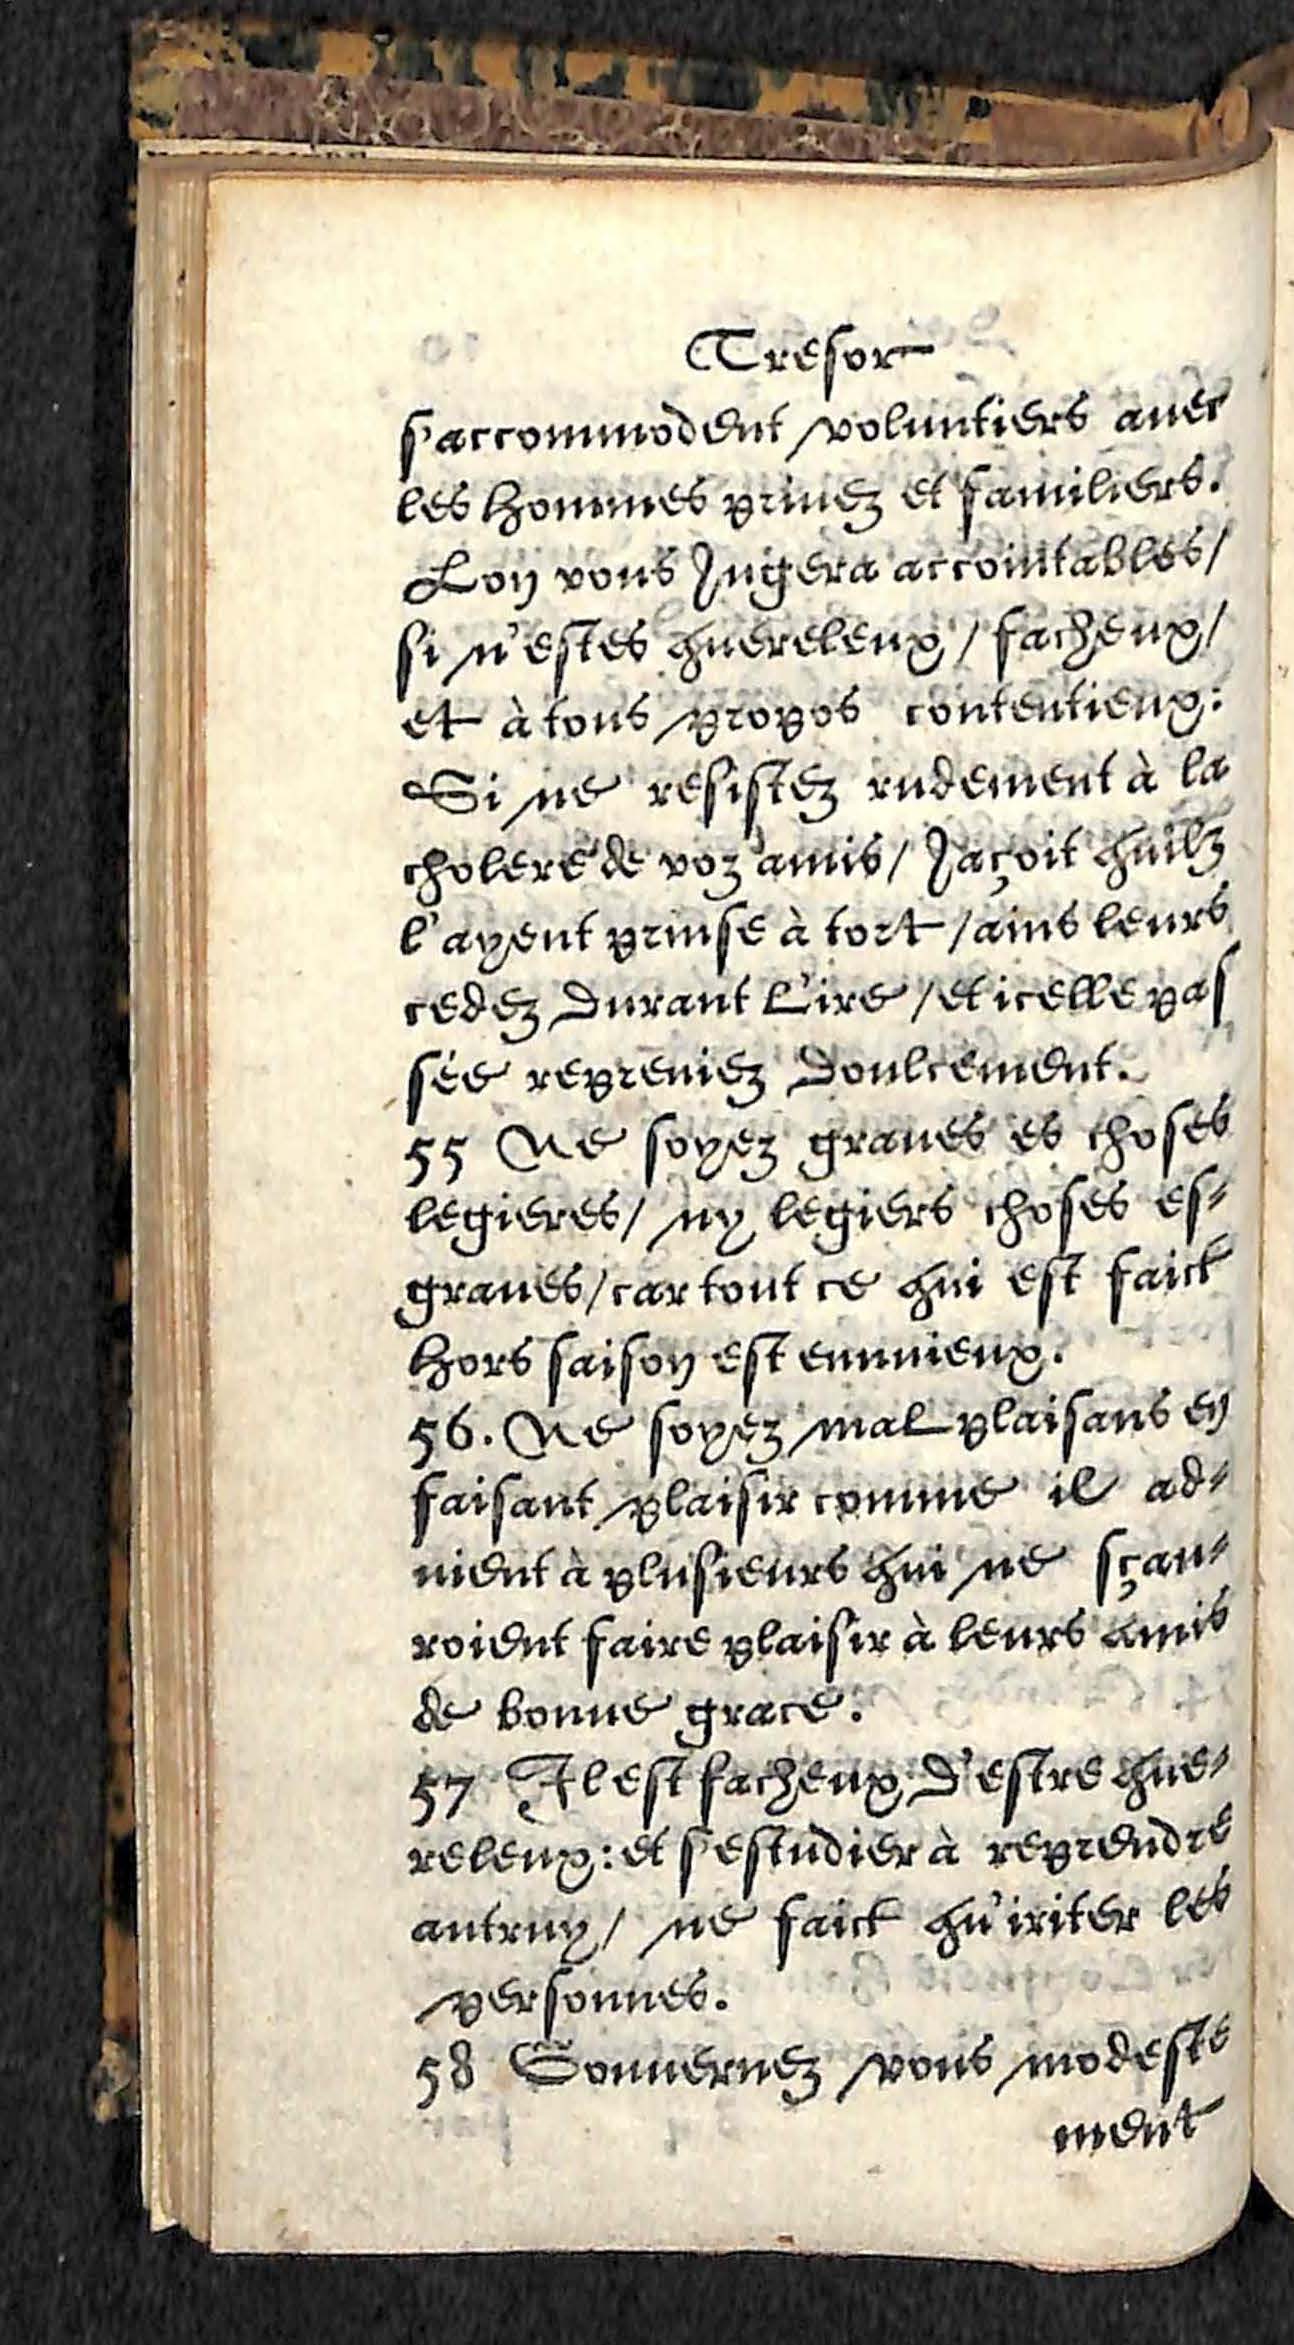 Tresor
s'accommodent voluntiers auec
les hommes priuez et familiers.
Lon vous Jugera accointables/
si n'estes quereleux/ facheux/
et à tous propos contentieux:
Si ne resistez rudement à la
cholere de voz amis/ Jaçoit quilz
l'ayent prinse à tort/ ains leurs
cedez durant L'ire/ et icelle pas
sée repreniez doulcement.
55 Ne soyez graues es choses
legieres/ ny legiers choses es-
graues/ car tout ce qui est faict
hors saison est ennuieux.
56. Ne soyez mal plaisans en
faisant plaisir comme il ad-
uient à plusieurs qui ne sçau-
roient faire plaisir à leurs amis
de bonne grace.
57 Il est facheux d'estre que-
releux: et s'estudier à reprendre
autruy/ ne faict qu'iriter les
personnes.
58 Gouuernez vous modeste
ment